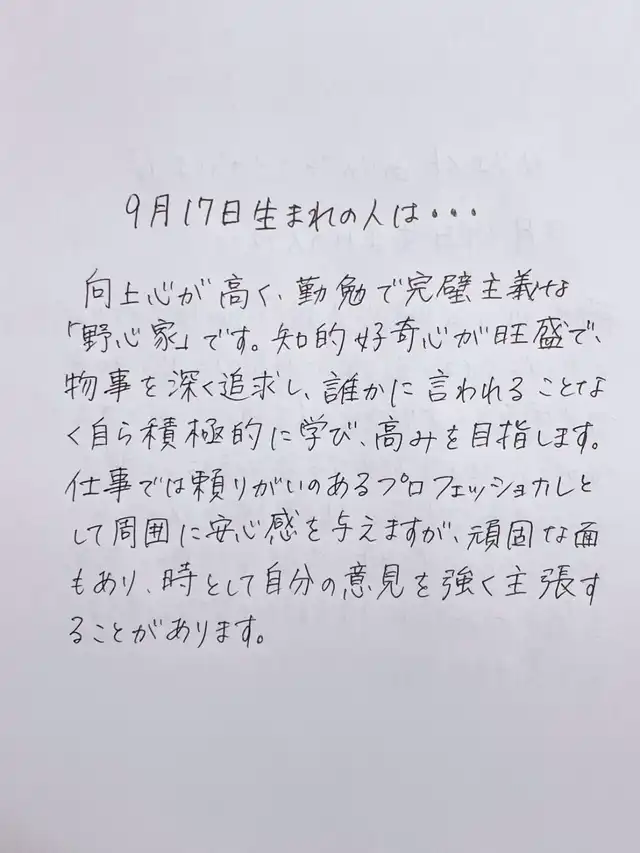 9月17日生まれの人は・・・
向上心が高く、勤勉で完璧主義な
「野心家」です。知的好奇心が旺盛で、
物事を深く追求し、誰かに言われることな
く自ら積極的に学び、高みを目指します。
仕事では頼りがいのあるプロフェッショナルと
して周囲に安心感を与えますが、頑固な面
もあり、時として自分の意見を強く主張す
ることがあります。